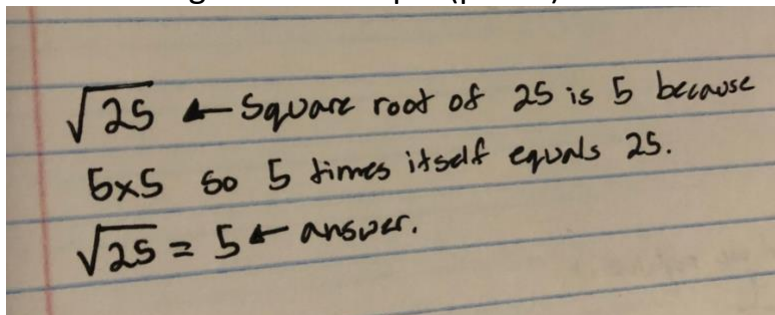 √25 ← Square root of 25 is 5 because
5x5 so 5 times itself equals 25.
√25 = 5 ← answer.